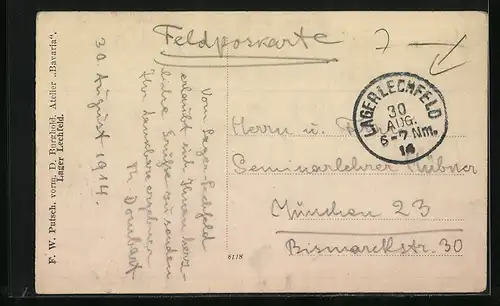 Feldpostkarte
30. August 1914.
Vom Lager Lechfeld
erlaubt sich Ihnen herz-
liche Grüße zu senden
Ihr dankbar ergebener
Th. Dombart
F. W. Putsch, vorm. D. Burghold, Atelier „Bavaria“.
Lager Lechfeld.
LAGER LECHFELD
30
AUG.
6-7 Nm.
14
Herrn u.
Seminarlehrer Hübner
München 23
Bismarckstr. 30
6178